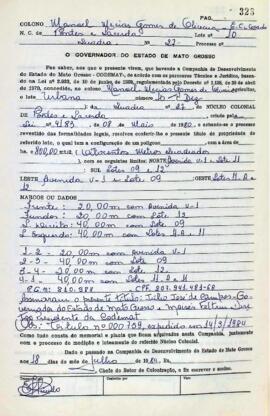 PAG.
323
COLONO Manoel Messias Gomes de Oliveira - E.C. Casado
N. C. de Pontes e Lacerda LOTE Nº 10
Quadra Nº 27 Processo nº
O GOVERNADOR DO ESTADO DE MATO GROSSO
Faz saber, aos que o presente virem, que havendo a Companhia de Desenvolvimento
do Estado de Mato Grosso - CODEMAT, de acordo com os pareceres Técnico e Jurídico, baseado
de 1970, concedido, no colono Manoel Messias Gomes de Oliveira
lote Urbano 10 - Dez
da Quadra nº 27 DO NÚCLEO COLONIAL
de Pontes e Lacerda, criado pela
Lei 4.183 de 08 de Maio 1980, e achando-se o processo
revestido das formalidades legais, resolveu conferir-lhe o presente título de propriedade do
referido lote, o qual é formado de um polígono com a área de
800,00 m2 (Oitocentos Metros Quadrados
), com os seguintes limites: NORTE Avenida U-1 Lote 11
SUL Lotes 09 e 12
LESTE Avenida U-1 e Lote 09 OESTE Lotes 11-A e
12
MARCOS OU DADOS
Frente: - 20,00m com Avenida U-1
Fundos: 20,00m com Lote 12
L. Direito: 40,00m com Lote 09
L. Esquerdo: 40,00m com Lotes 11-A e 11
1-2 - 20,00m com Avenida U-1
2-3 - 40,00m com Lote 09
3-4 - 20,00m com Lote 12
4-1 - 40,00m com Lotes 11-A e 11
Assinaram o presente Título: Júlio José de Campos - Go-
vernador do Estado de Mato Grosso - Moisés Feltrin - Dire
tor Presidente da Codemat
Obs: Título nº 000.759, expedido em 14/3/1984
Como tudo consta do memorial e planta que ficam arquivados, juntamente com o
processo de medição e loteamento do referido Núcleo Colonial.
Dado e passado na Companhia de Desenvolvimento do Estado de Mato Grosso
aos 18 dias do mês de Julho de 1984. Eu,
Chefe do Setor de Colonização, a fiz escrever e assino.